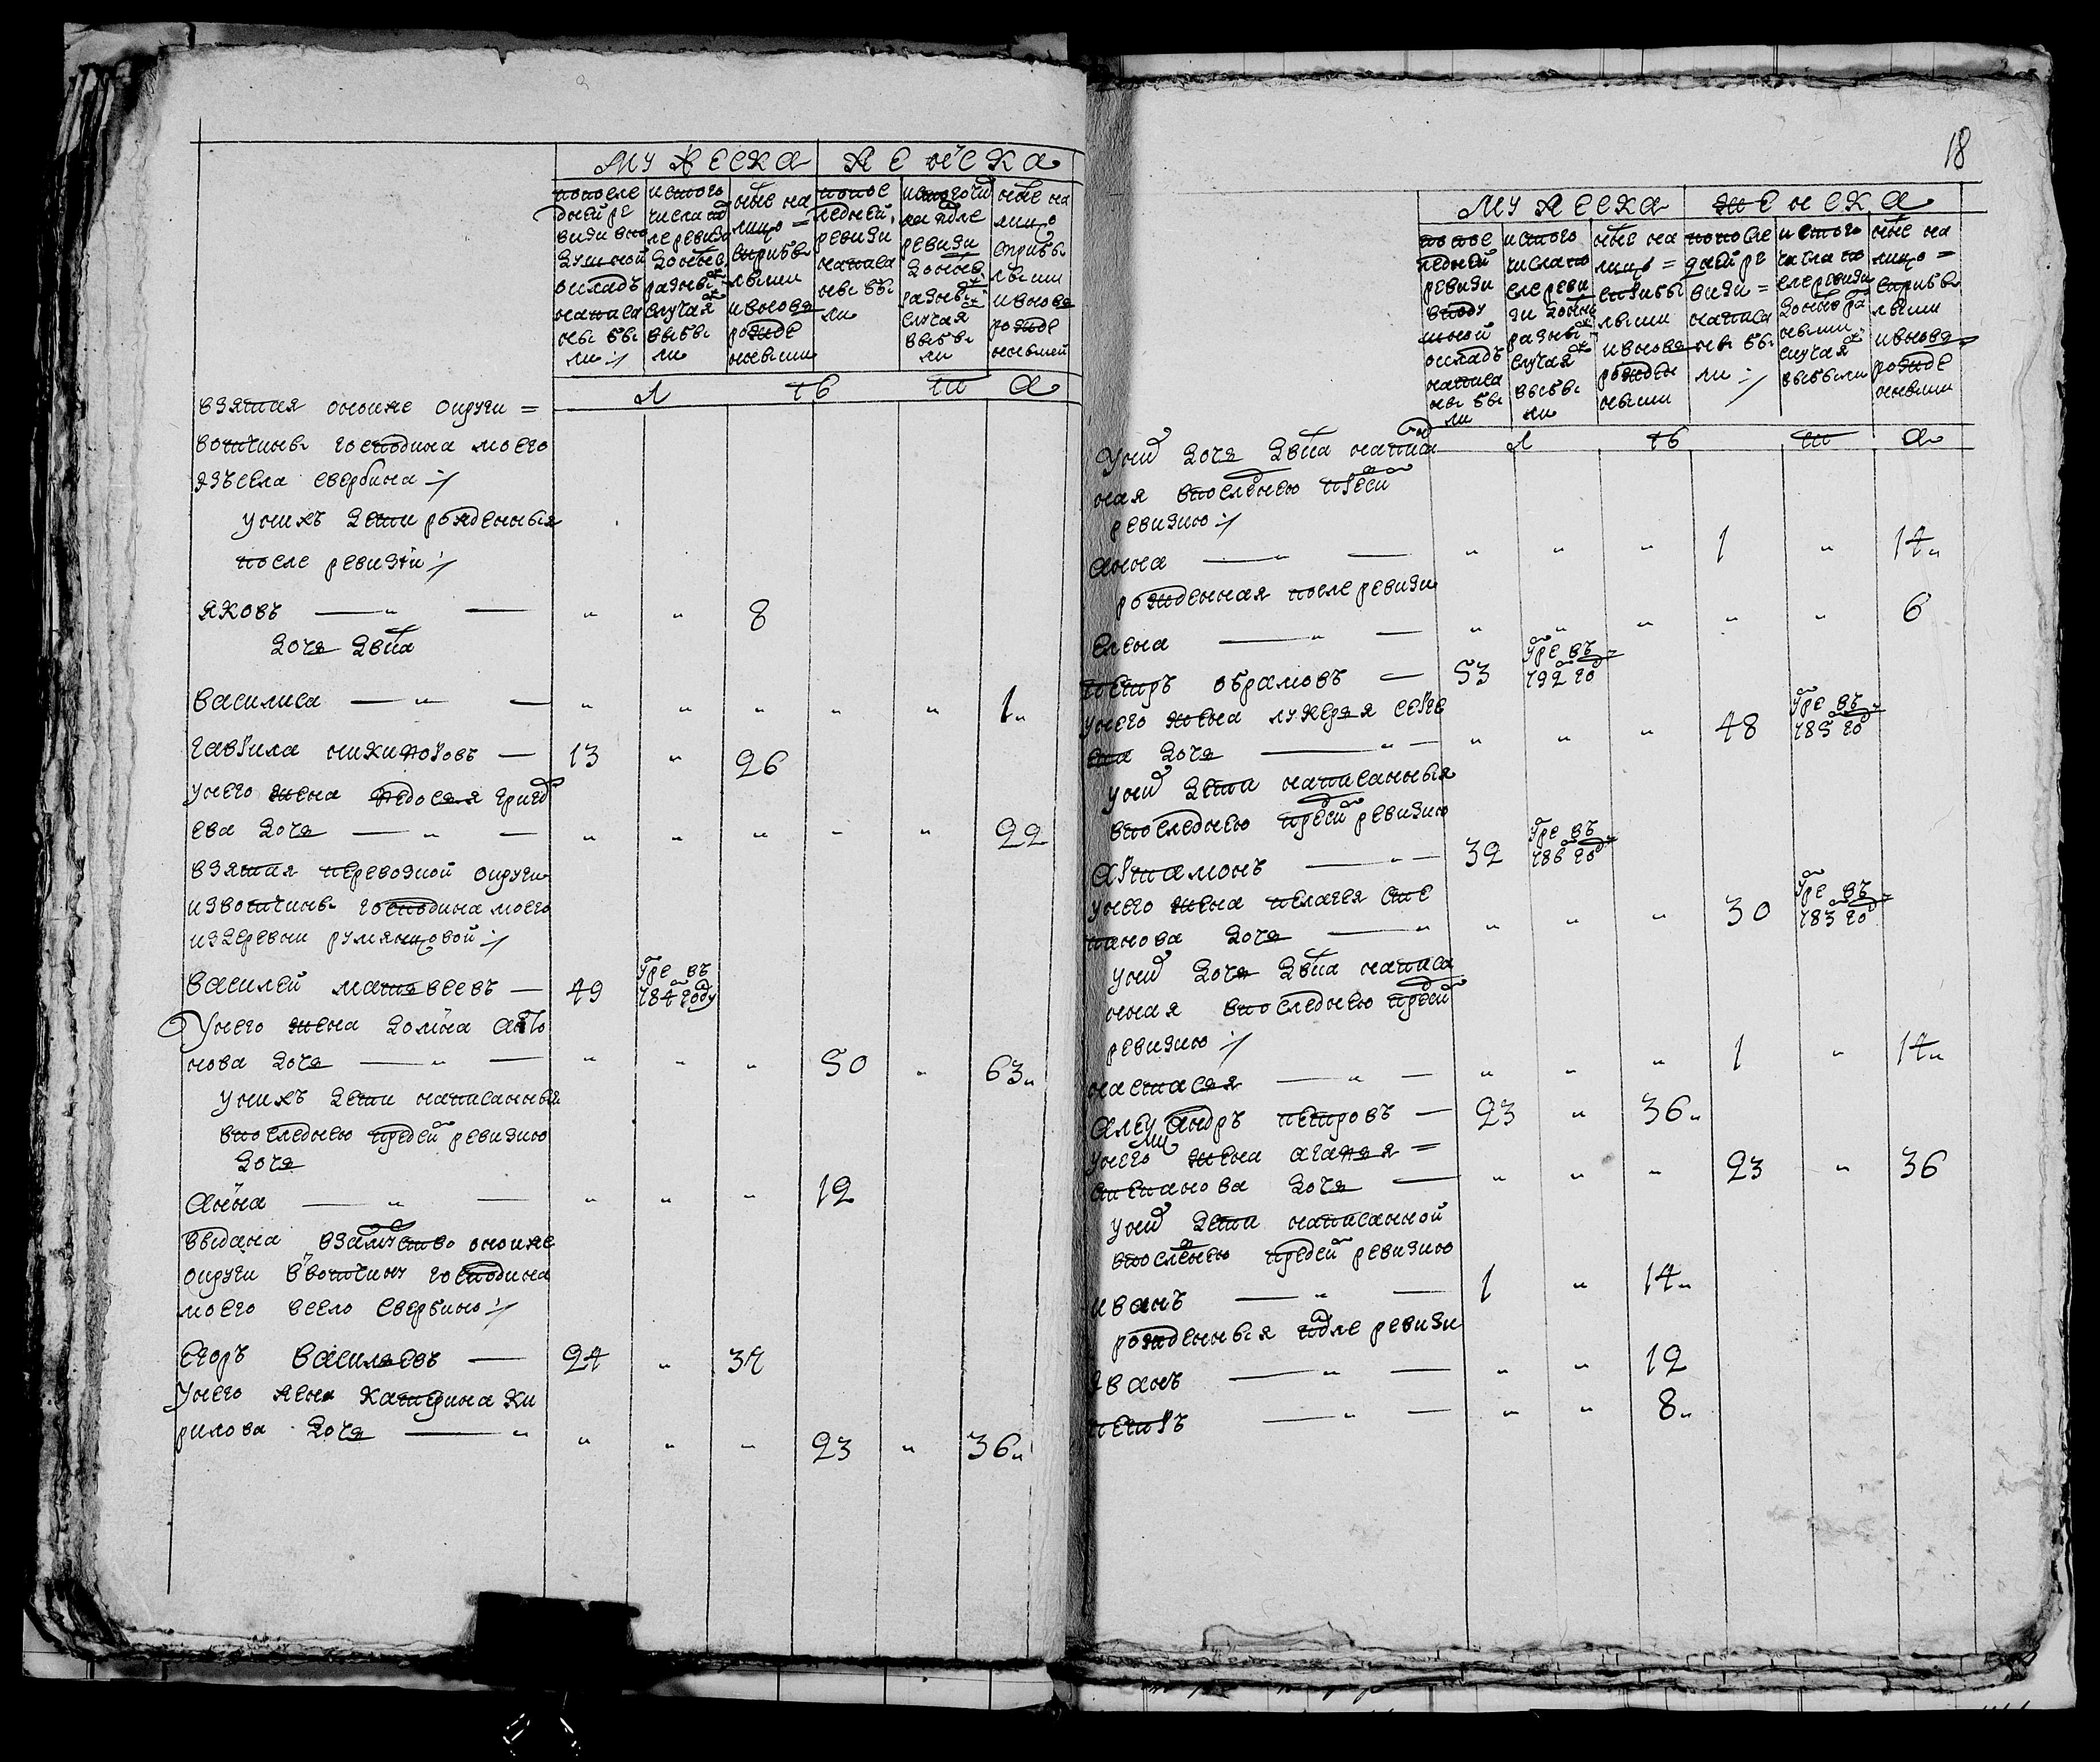 мужеска женска
попосле дней ре визи впо душной окладъ написа ны бы ли :/
ис того числа по сле ревизи
ныне на лицо = с прибы лыми и вновь рожде нными
попос ледней ревизи написа ны бы ли
ис того чи сла после ревизи
ныне на лицо с прибы лыми и вновь рожде нными
л ѣ т а
взятая оной же округи =
вотчины господина моего
изъ села свербина :/
у нихъ дети рожденныя
после ревизiи :/
яковъ — „ — „ „ 8
дочь двка
василиса — „ — „ „ „ „ „ 1„
гаврила никифоровъ — 13 „ 26
у него жена федосья григор
ева дочь — „ — „ „ „ „ „ 22
взятая перевозной округи
из вотчины господина моего
из деревни румянцовой :/
василей матвеевъ — 49 умре въ 784 году
у него жена домна анто
нова дочь — „ — „ „ „ 50 „ 63„
у нихъ дети написанныя
в последнею пред сей ревизию
дочь
анна — „ — „ „ „ 12
выдана в замужство оной же
округи в вотчину господина
моего в село свербино :/
егоръ васильевъ — 24 „ 34
у него жена катерина ки
рилова дочь — „ „ „ „ 23 „ 36„
18
мужеска женска
попос ледней ревизи в поду шной окладъ написа ны бы ли
ис того числа по сле реви зи
ныне на лицо = с прибы лыми и вновь рожден ными
попосле дней ре визи = написа ны бы ли :/
ис того числа по сле ревизи
ныне на лицо = с прибы лыми и вновь рожде нными
л ѣ т а
у них дочь двка написан
ная в последнею пред сей
ревизию :/
анна — „ — „ „ „ 1 „ 14„
рожденная после ревизи
елена — „ — „ „ „ „ „ 6
петръ абрамовъ — 53 умре въ 792 го
у него жена лукерья сергее
ва дочь — „ — „ „ „ 48 умре въ 785 го
у них дети написанныя
в последнею пред сей ревизию
артамонъ — „ — 32 умре въ 786 го
у него жена пелагея сте
панова дочь — „ „ „ „ 30 умре въ 783 го
у них дочь двка написа
нная в последнею пред сей
ревизию :/
настасья — „ — „ „ „ 1 „ 14„
александръ петровъ — 23 „ 36„
у него жена агафья =
степанова дочь — „ „ „ 23 „ 36
у них дети написанной
в последнею пред сей ревизию
иванъ — „ — 1 „ 14„
рожденныя после ревизи
иванъ — „ — „ „ 12
петръ — „ — „ „ 8„